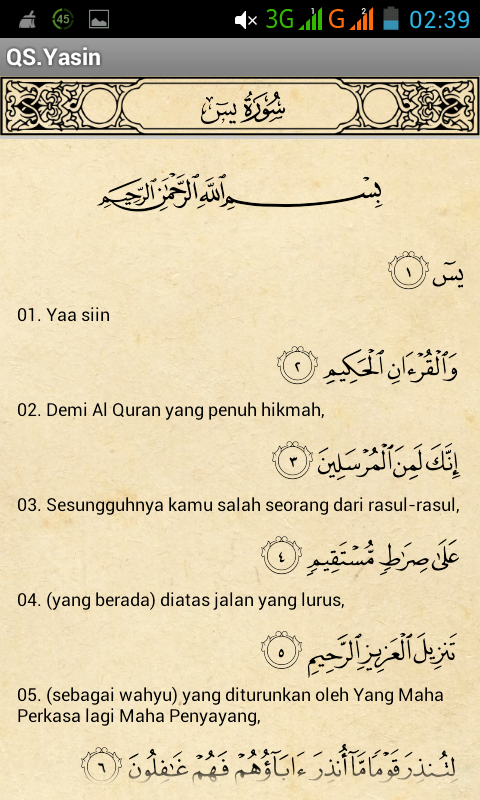 45 3G 1 G 2 02:39
QS.Yasin
سُورَةُ يسٓ
بِسْمِ اللَّهِ الرَّحْمَٰنِ الرَّحِيمِ
يسٓ ١
01. Yaa siin
وَالْقُرْءَانِ الْحَكِيمِ ٢
02. Demi Al Quran yang penuh hikmah,
إِنَّكَ لَمِنَ الْمُرْسَلِينَ ٣
03. Sesungguhnya kamu salah seorang dari rasul-rasul,
عَلَىٰ صِرَٰطٍ مُّسْتَقِيمٍ ٤
04. (yang berada) diatas jalan yang lurus,
تَنزِيلَ الْعَزِيزِ الرَّحِيمِ ٥
05. (sebagai wahyu) yang diturunkan oleh Yang Maha
Perkasa lagi Maha Penyayang,
لِتُنذِرَ قَوْمًا مَّآ أُنذِرَ ءَابَآؤُهُمْ فَهُمْ غَٰفِلُونَ ٦